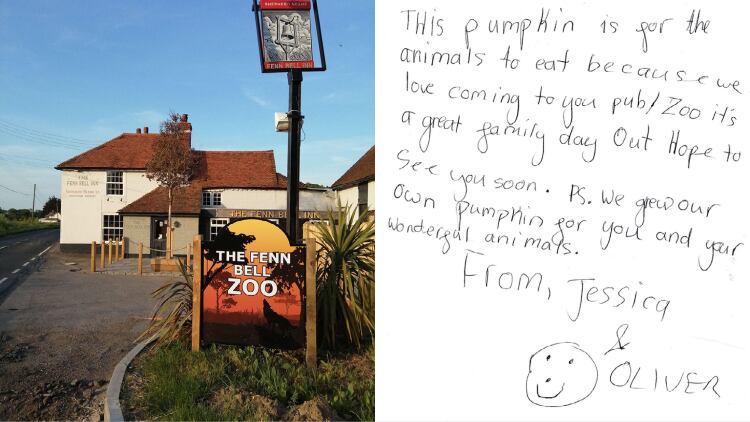 SHEPHERD NEAME
FENN BELL INN
THE FENN
BELL INN
THE FENN BELL INN
THE FENN
BELL
ZOO
THis pumpkin is for the
animals to eat because we
love coming to you pub/Zoo it's
a great family day Out Hope to
See you soon. Ps. We grew our
own pumpkin for you and your
wonderful animals.
From, Jessica
&
OLIVER